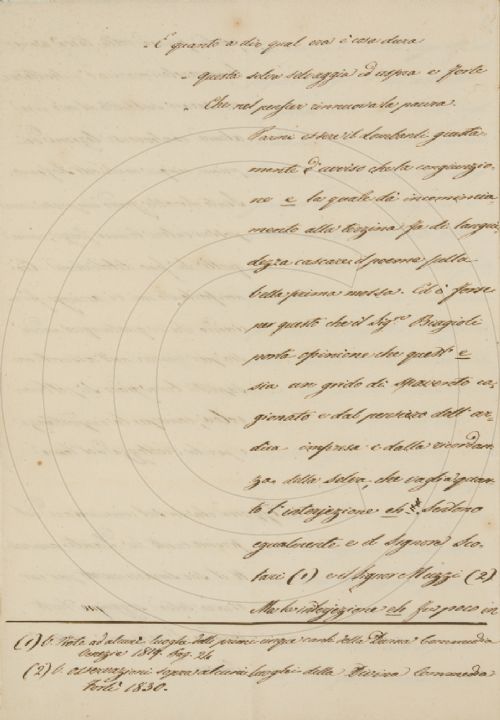 E quanto a dir qual era è cosa dura
questa selva selvaggia ed aspra e forte
Che nel pensier rinnuova la paura.
Parmi essere il Lombardi giusta-
mente d'avviso che la congiunzio-
ne e la quale dà incomincia-
mento alla terzina fa di langui-
dezza cascare il poema sulla
bella prima mossa. Ed è forse
per questo che il Sig.re Biagioli
porta opinione che quest' e
sia un grido di spavento ca-
gionato e dal pensiero dell' ar-
dita impresa e dalla ricordan-
za della selva, che vaglia quan-
to l'interjezione eh! Sentono
egualmente e il Signore Sco-
lari (1) e il Signor Muzzi (2)
Ma la interjezione eh fu poco in
(1) V. Note ad alcuni luoghi delli primi cinque canti della Divina Commedia
Venezia 1819. Pag. 24
(2) V. Osservazioni sopra alcuni luoghi della Divina Commedia
Forlì 1830.